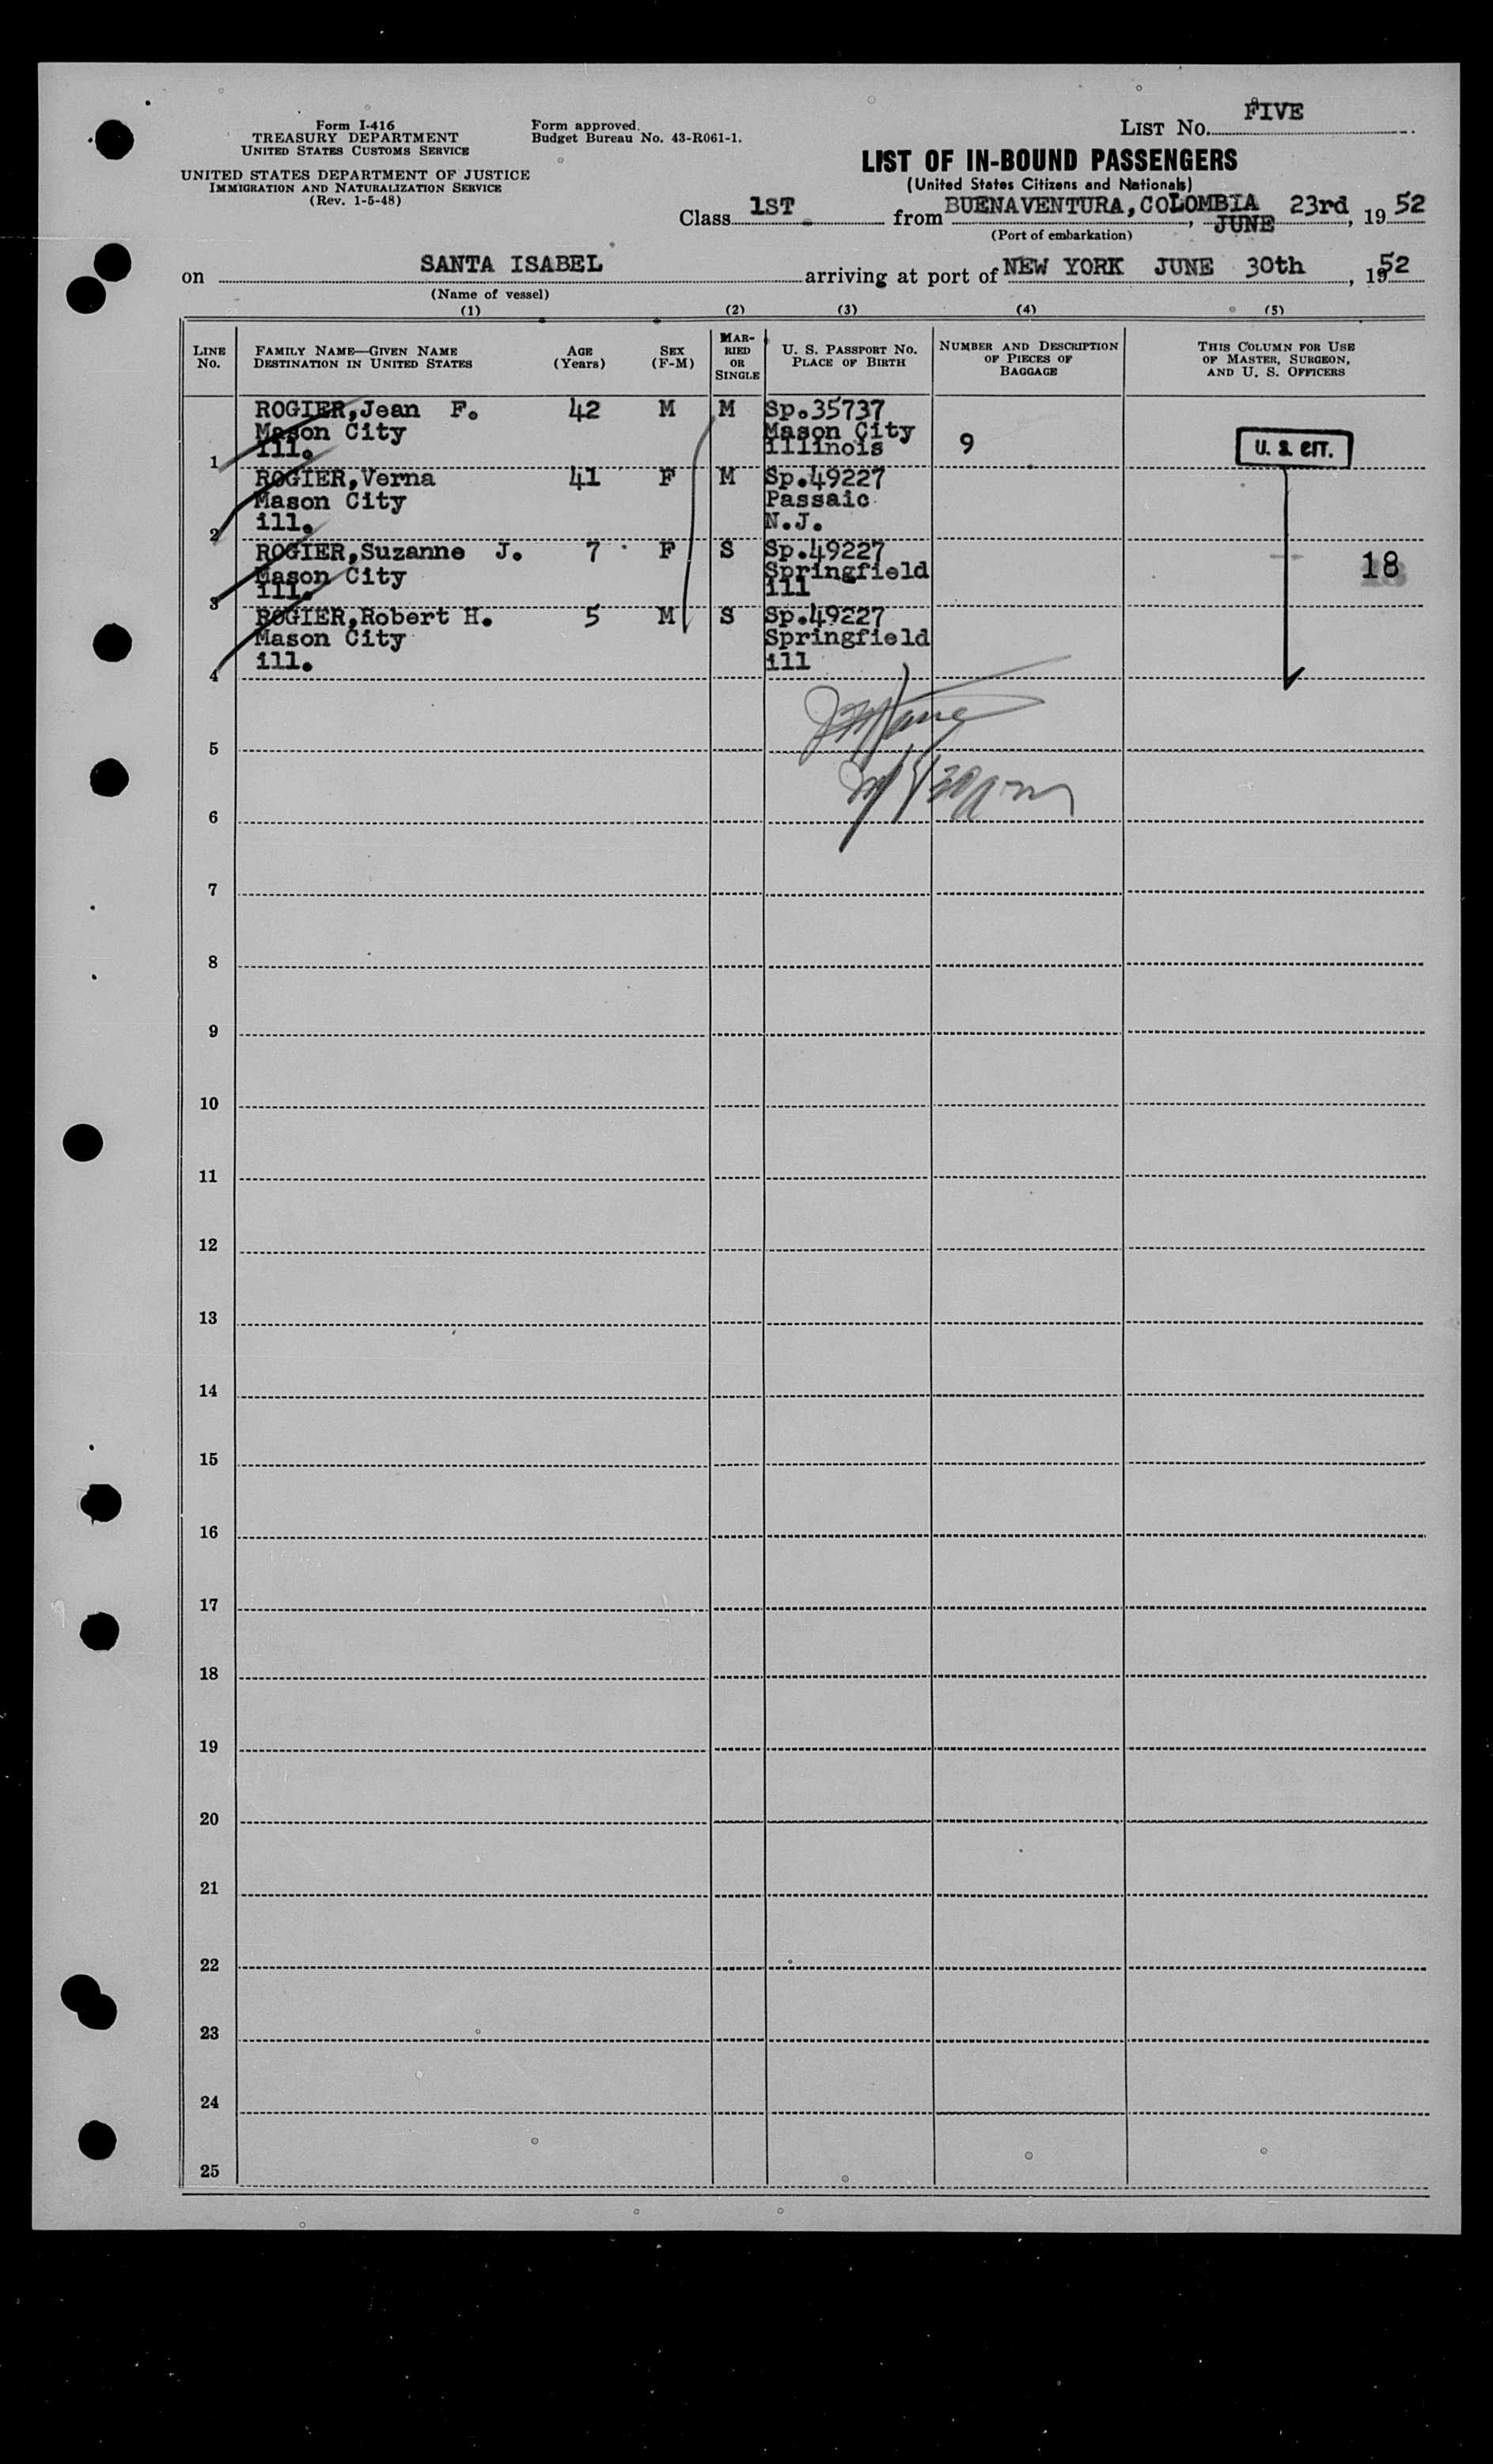 Form I-416
TREASURY DEPARTMENT
UNITED STATES CUSTOMS SERVICE
UNITED STATES DEPARTMENT OF JUSTICE
IMMIGRATION AND NATURALIZATION SERVICE
(Rev. 1-5-48)
Form approved.
Budget Bureau No. 43-R061-1.
LIST No. FIVE
LIST OF IN-BOUND PASSENGERS
(United States Citizens and Nationals)
Class 1ST from BUENAVENTURA, COLOMBIA, JUNE 23rd, 1952
(Port of embarkation)
on SANTA ISABEL arriving at port of NEW YORK JUNE 30th, 1952
(Name of vessel)
(1) (2) (3) (4) (5)
LINE No.
FAMILY NAME—GIVEN NAME
DESTINATION IN UNITED STATES
AGE
(Years)
SEX
(F-M)
MAR-
RIED
OR
SINGLE
U. S. PASSPORT No.
PLACE OF BIRTH
NUMBER AND DESCRIPTION
OF PIECES OF
BAGGAGE
THIS COLUMN FOR USE
OF MASTER, SURGEON,
AND U. S. OFFICERS
ROGIER, Jean F. 42 M M Sp.35737
Mason City Mason City
1 ill. illinois 9 U. S CIT.
ROGIER, Verna 41 F M Sp.49227
Mason City Passaic
2 ill. N.J.
ROGIER, Suzanne J. 7 F S Sp.49227
Mason City Springfield 18
3 ill. ill
ROGIER, Robert H. 5 M S Sp.49227
Mason City Springfield
4 ill. ill
5
6
7
8
9
10
11
12
13
14
15
16
17
18
19
20
21
22
23
24
25